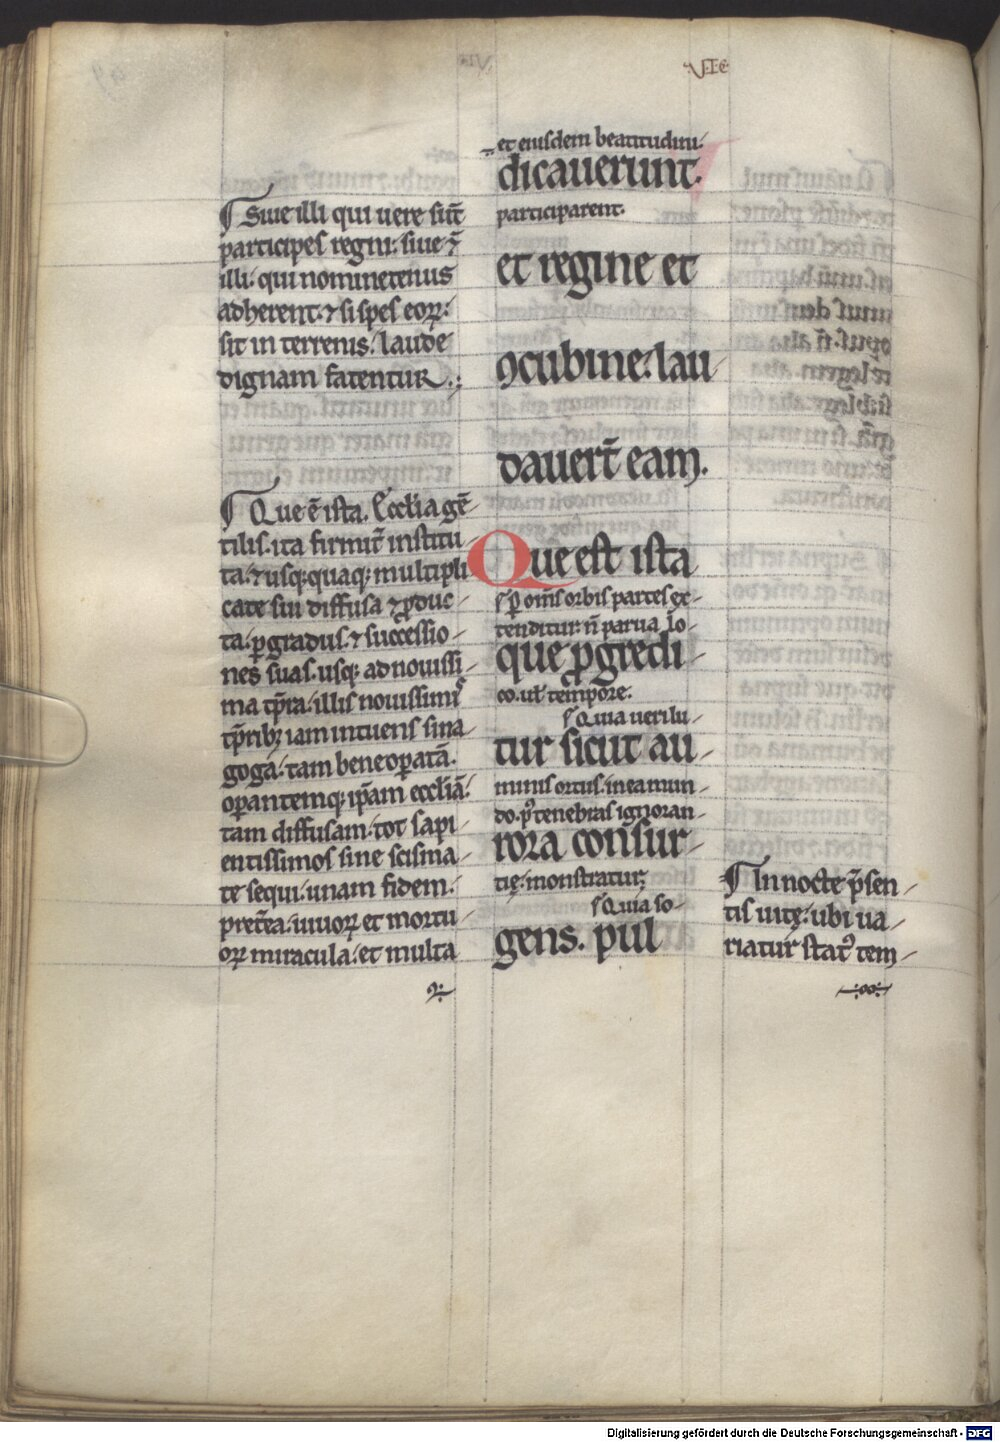 V·I·E
¶ Siue illi qui uere sūt
participes regni: siue ⁊̄
illi· qui nominetenus
adherent· ⁊ si spes eoꝝ:
sit in terrenis: laude
dignam fatentur.;
¶ Que ē ista. Ecclīa gē-
tilis· ita firmit̄ institu-
ta· ⁊ usq; quaq; multipli
cate sui diffusa ⁊ ꝓduc-
ta· ꝑ gradus· ⁊ successio-
nes suas· usq; ad nouissi-
ma tp̄ra: illis nouissimis
tp̄ribꝫ iam intuens sina-
goga· tam bene oꝑatā·
oꝑantemq; ip̄am ecclīā:
tam diffusam· tot sapi-
entissimos sine scisma-
te sequi· unam fidem·
pret̄ea· uiuoꝝ et mortu-
oꝝ miracula: et multa
et eiusdem beatitudini-
dicauerunt.
participarent.
et regine et
ꝯcubine: lau-
dauer̄t eam.
Que est ista
s· ꝑ om̄s orbis partes ex-
tenditur: n̄ parua lo-
que ꝓgredi-
co· ul̄ tempore:
s· Quia ueri lu-
tur sicut au-
minis ortus: in ea mun-
do· p᷒ tenebras ignoran-
rora consur-
tię: monstratur;
s· Quia so-
gens. pul
¶ In nocte p̄sen-
tis uitę: ubi ua-
riatur stat᷒ tem-
Digitalisierung gefördert durch die Deutsche Forschungsgemeinschaft - DFG